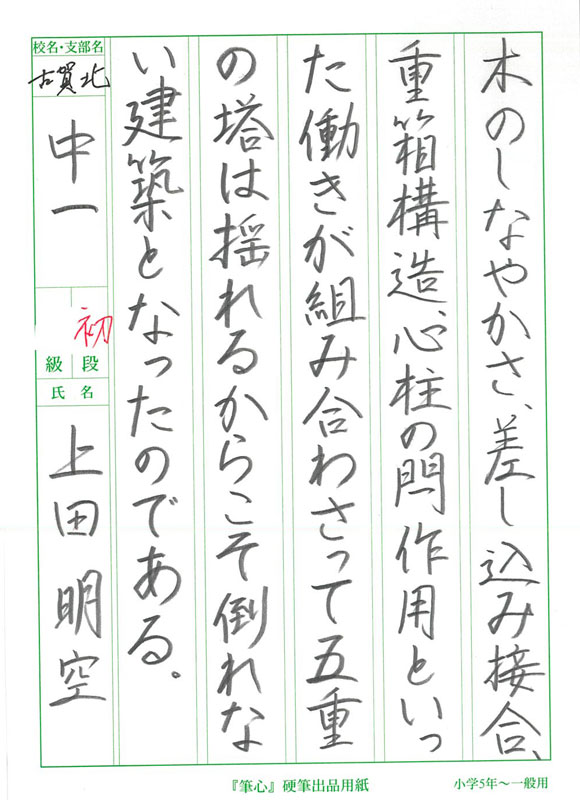 木のしなやかさ、差し込み接合、
重箱構造、心柱の閂作用といっ
た働きが組み合わさって五重
の塔は揺れるからこそ倒れな
い建築となったのである。
校名・支部名
古賀北
中一
初
級 段
氏名
上田明空
『筆心』硬筆出品用紙
小学5年〜一般用